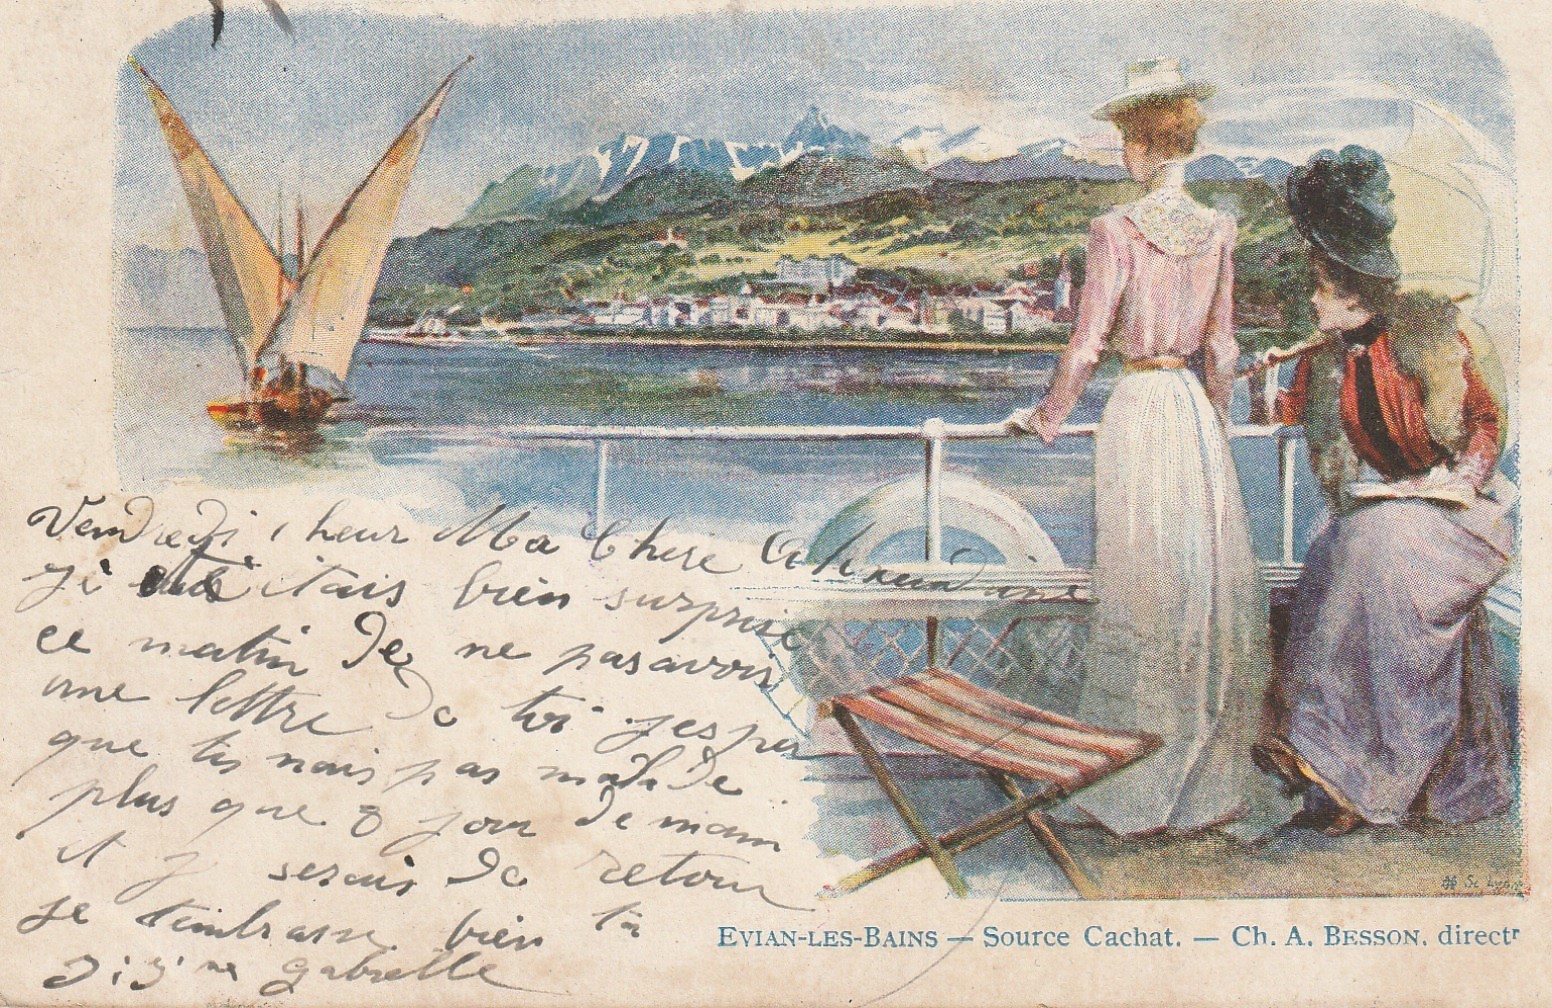 Vendredi 1 heur Ma Chere
ji étais bien surprise
ce matin de ne pas avoir
une lettre de toi jesper
que tu nais pas malade
plus que 8 jour demain
et j serais de retour
je tembrasse bien ta
Gabrielle
EVIAN-LES-BAINS — Source Cachat. — Ch. A. BESSON, direct<sup>r</sup>